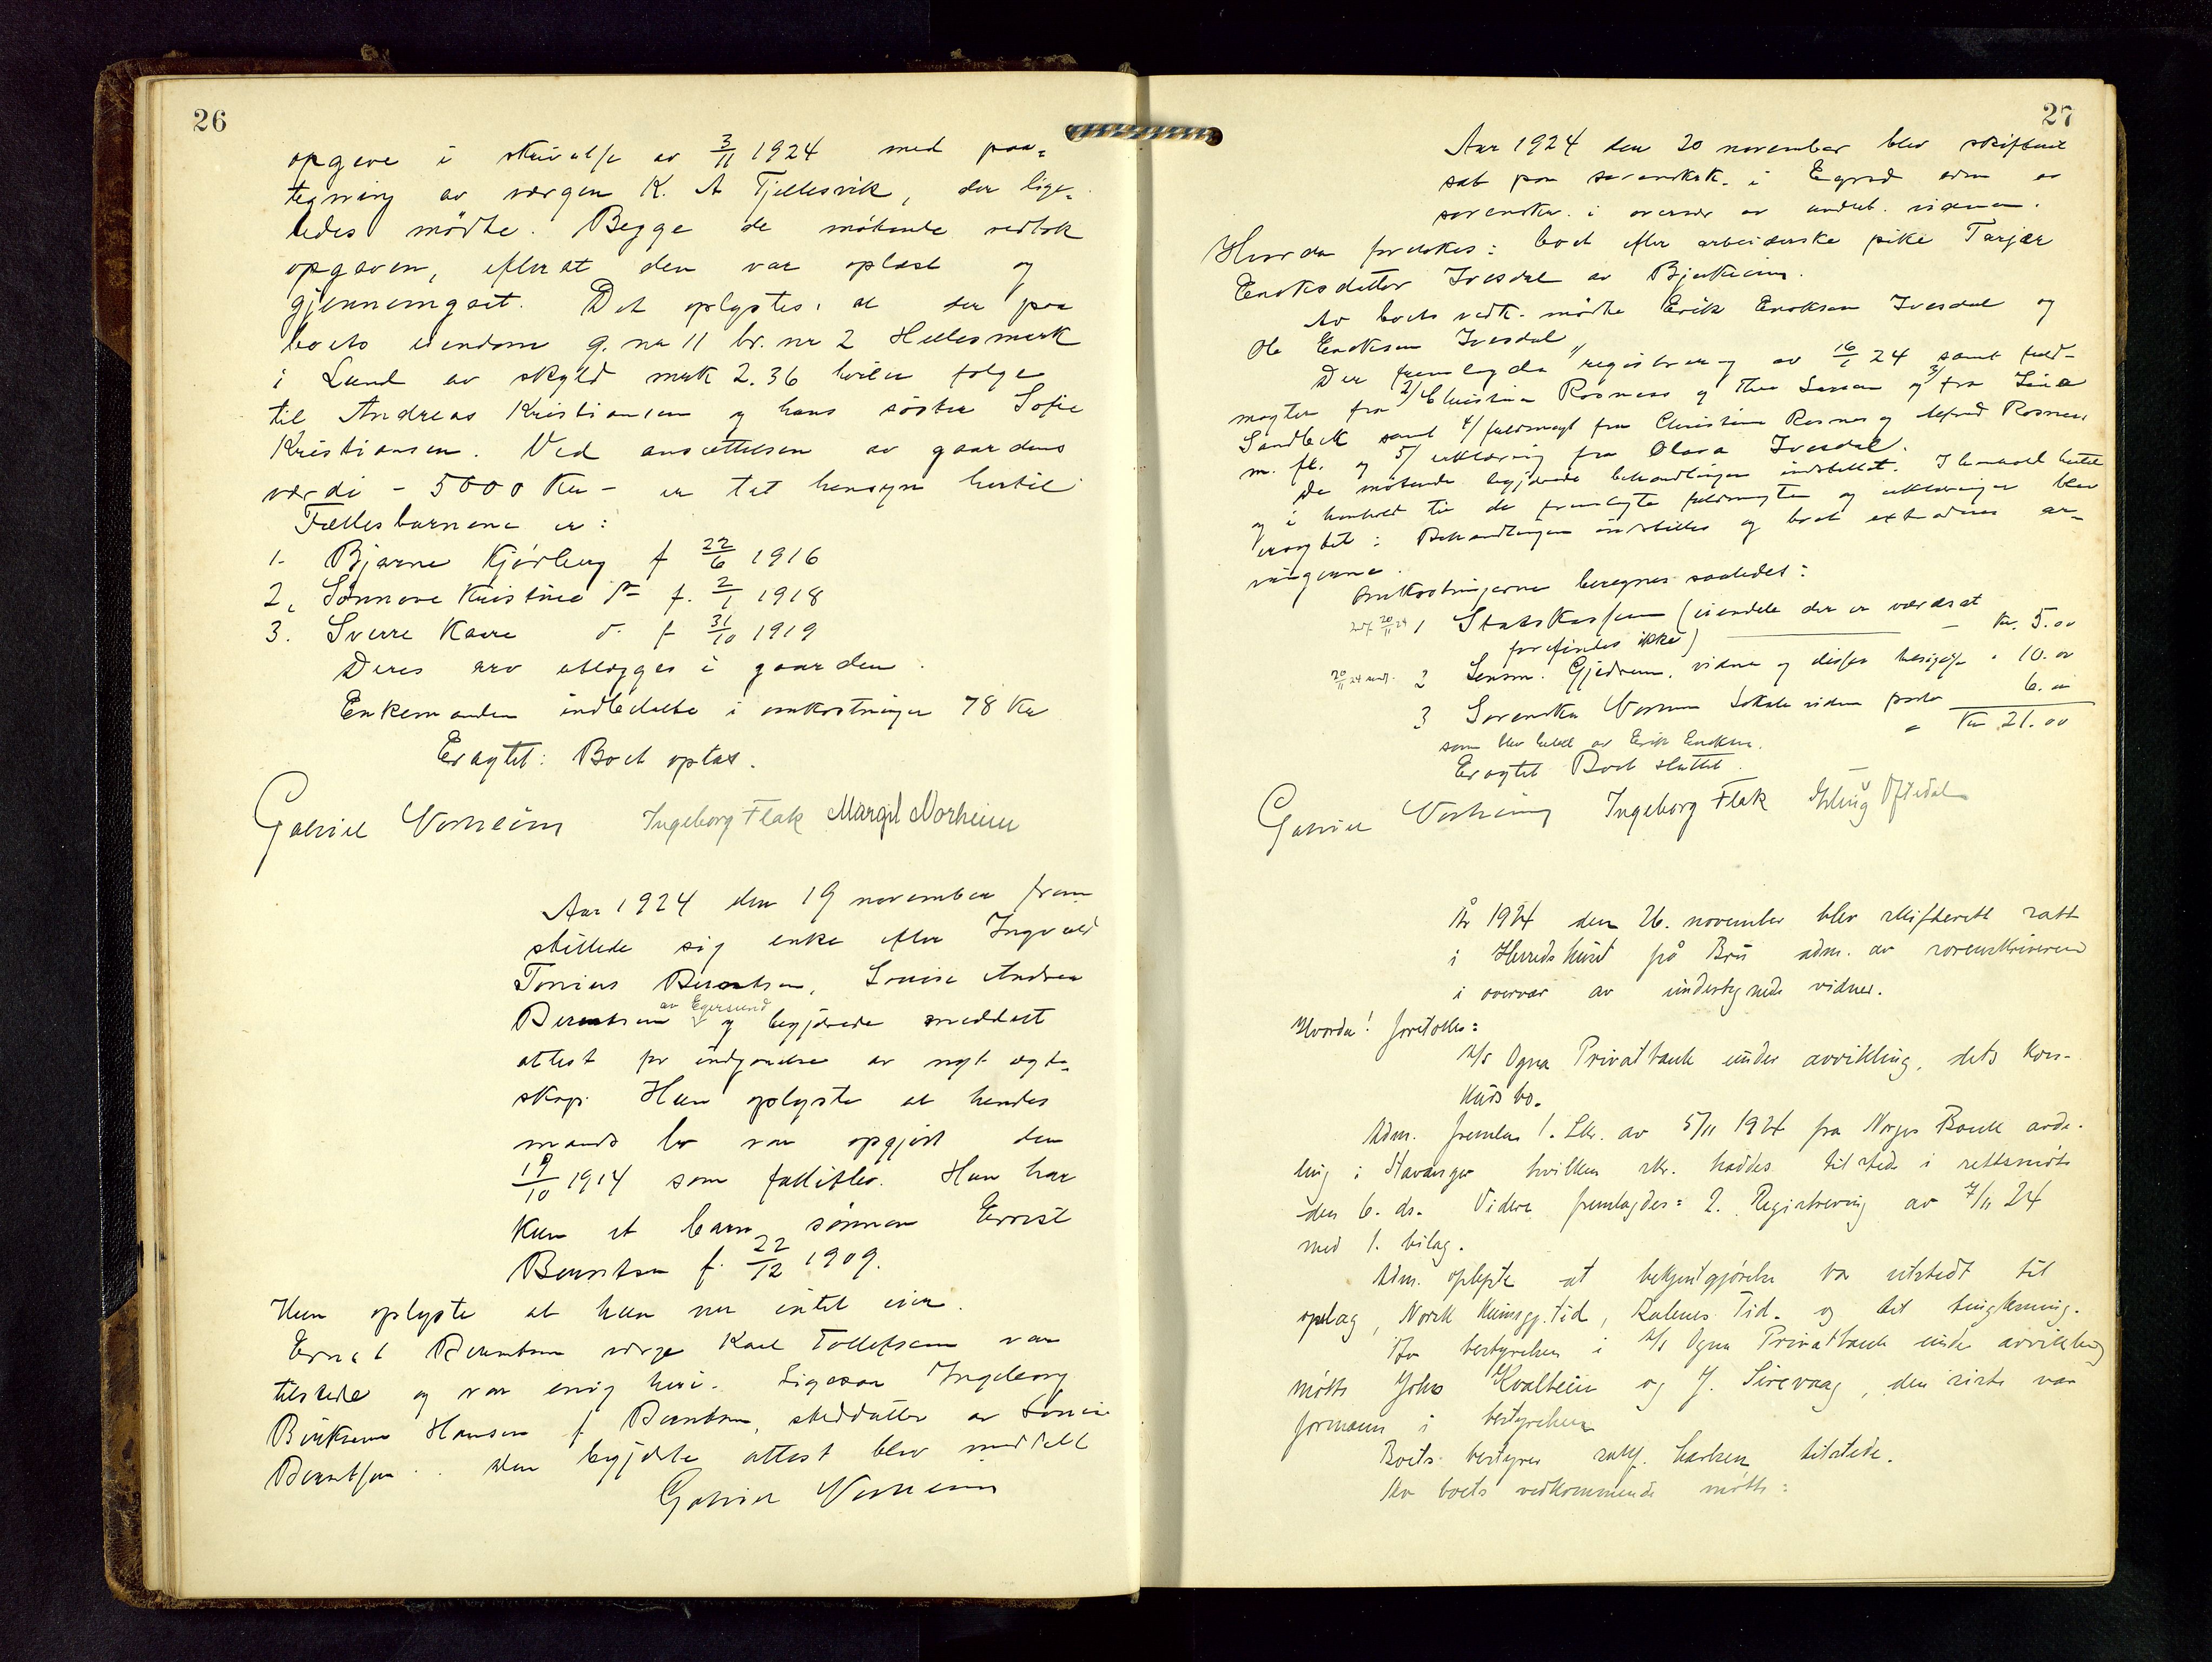 26
opgave i skrivelse av 3/11 1924 med paa-
tegning av vergen K. A Tjellesvik, der lige-
ledes mødte. Begge de møtende vedtok
opgaven, efterat den var oplæst og
gjennemgaat. Det oplystes at der paa
boets eiendom g. nr 11 br. nr 2 Hellesmark
i Lund av skyld mark 2.36 hviler følge
til Andreas Kristiansen og hans søster Sofie
Kristiansen. Ved ansættelsen av gaardens
værdi - 5000 Kr - er tat hensyn hertil
Fællesbarnene er:
1. Bjarne Kjørberg f 22/6 1916
2. Sønnøve Kristine do f. 2/1 1918
3. Sverre Kaare d. f 31/10 1919
Deres arv utlægges i gaarden.
Enkemanden indbetalte i omkostninger 78 Kr
Eragtet: Boet optas.
Gabriel Norheim Ingeborg Flak Margit Norheim
Aar 1924 den 19 november frem
stillede sig enke efter Ingvald
Tonius Berentsen, Louise Andrea
Berentsen av Egersund og begjærede meddelt
attest for indgaaelse av nyt egte-
skap. Hun oplyste at hendes
mands bo var opgjort den
19/10 1914 som fallitbo. Hun har
kun et barn, sønnen Ernst
Berntsen f. 22/12 1909.
Hun oplyste at hun nu intet eier.
Ernst Berentsen verge Karl Tollefsen var
tilstede og var enig heri. Ligesaa Ingeborg
Hansen f Berntsen, steddatter av Louise
Berntsen. Den begjærte attest blev meddelt
Gabriel Norheim
27
Aar 1924 den 20 november blev skifteret
sat paa sorenskrk. i Egersd adm av
sorenskr. i overvær av undert. vidner.
Hvorda foretokes: boet efter arbeiderske pike Tarjer
Enoksdatter Ivesdal av Bjerkreim.
Av boets vedk. mødte Erik Enoksen Ivesdal og
Ole Enoksen Ivesdal
Der fremlagdes 1/ registrering av 16/1 24 samt fuld-
magter fra 2/ Christina Rosness og Thea Larsen og 3/ fra Lina
Sandbek samt 4/ fuldmagt fra Christina Rosnes og Alfred Rosness
m. fl. og 5/ erklæring fra Olava Ivesdal.
De møtende begjærede behandlingen indstillet. I henhold hertil
og i henhold til de fremlagte fuldmagter og erklæringer blev
eragtet: Behandlingen indstilles og boet extraderes ar-
vingerne.
Omkostningerne beregnes saaledes:
1 Statskassen (eiendele der er værdsat
forefindes ikke) — Kr. 5.00
2 Lensm. Gjedrem, vidner og disses " 10.00
3 Sorenskr Norheim lokale vidner porto 6.00
Kr 21.00
som blev betalt av Erik Enoksen.
Eragtet Boet sluttet.
Gabriel Norheim Ingeborg Flak Erling Oftedal
År 1924 den 26. november blev skifterett satt
i Herredshuset på Bru adm. av sorenskriveren
i overvær av undertegnede vidner.
Hvorda! foretokes:
A/S Ogna Privatbank under avvikling, dets kon-
kursbo.
Adm. fremla 1. Skr. av 5/11 1924 fra Norges Bank avde-
ling i Stavanger hvilken skr. haddes tilstede i rettsmøte
den 6. ds. Videre fremlagdes: 2. Registrering av 7/11 24
med 1. bilag.
Adm. oplyste at bekjentgjørelse var utstedt til
opslag, Norsk Kunngj. tid, Dalenes Tid. og det tinglysning.
For bestyrelsen i A/S Ogna Privatbank under avvikling
møtte John Kvalbein og J. Sirevaag, den siste var
formann i bestyrelsen
Boets bestyrer sakf. Larsen tilstede.
Av boets vedkommende møtte: